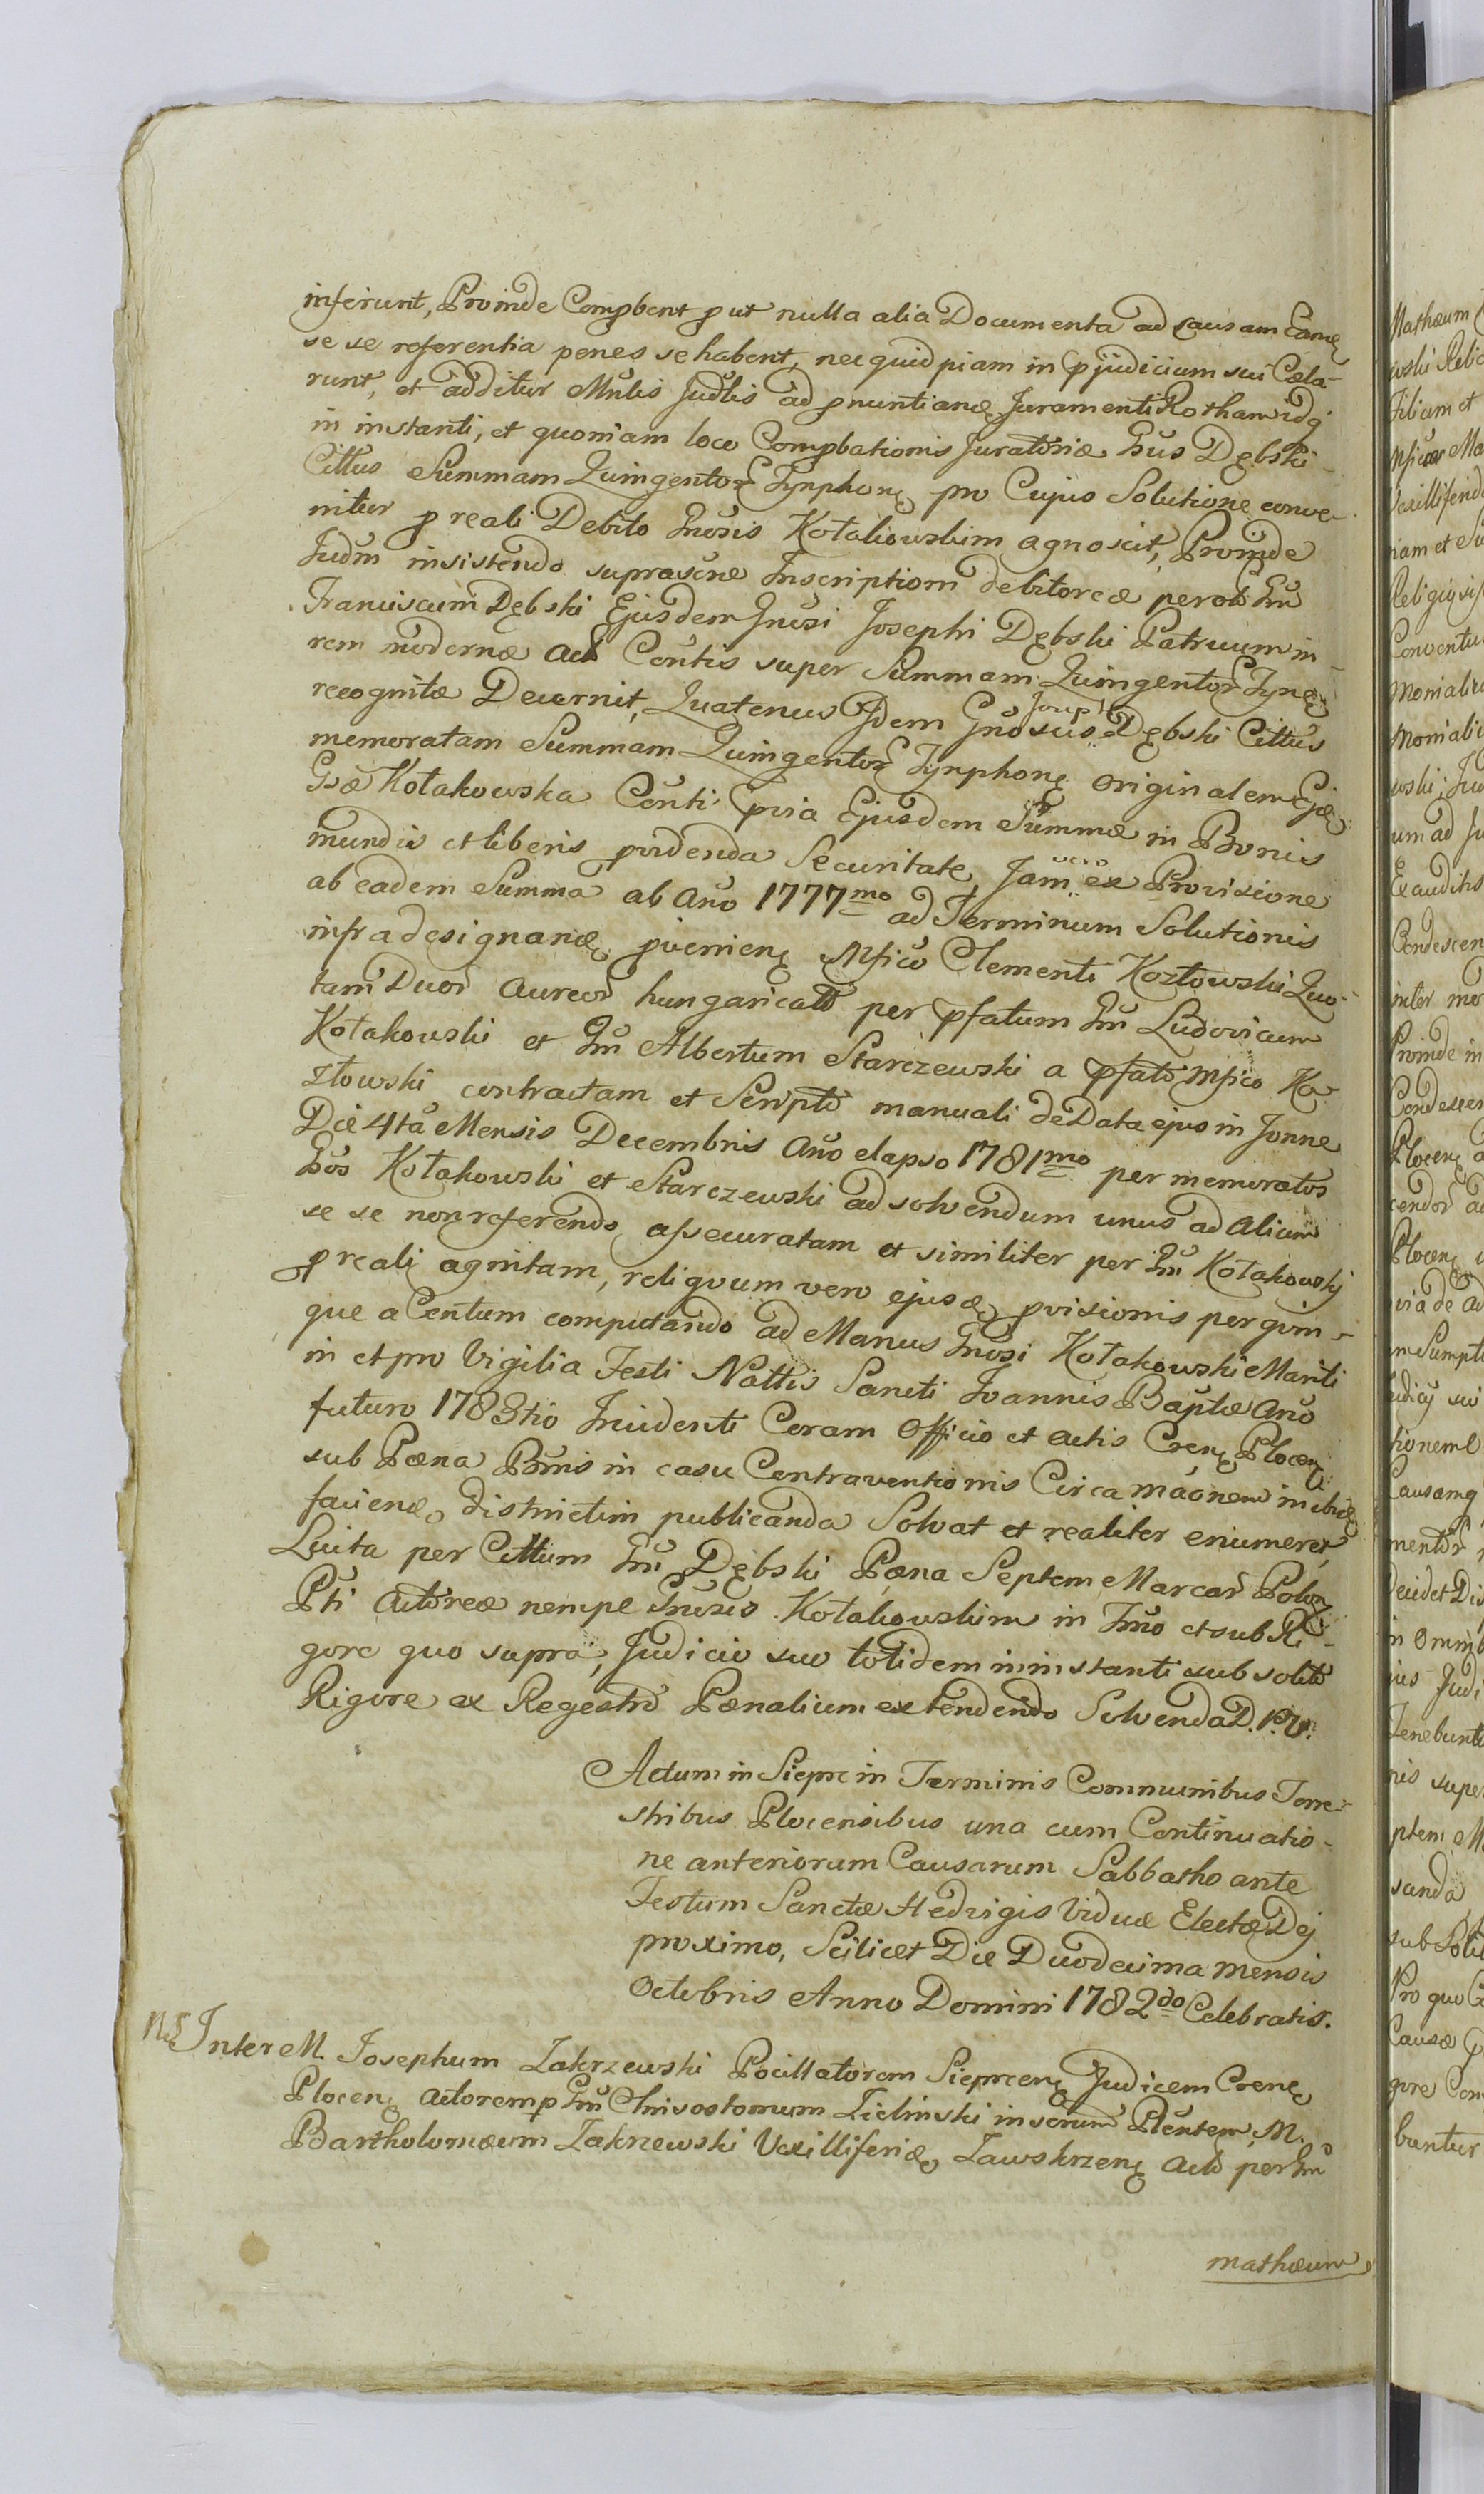 inferunt, Proinde Compbent put nulla alia Documenta ad causam Eanđ
se se referentia penes se habent, nec quid piam in pjudicium sui Cæla-
runt, et additur Mnlis Judlis ad pnuntianđ Juramenti Rotham idq
in instanti, et quoniam loco Compbationis Juratoriæ Gńs Dębski
Cittus Summam Quingentor Tynphonę pro Cujus Solutione conve-
nitur p reali Debito Gnosis Kołakowskim agnoscit, Proinde
Judm insistendo suprascne Inscriptioni debitoreæ per
Franciscum Dębski Ejusdem Gnosi Josephi Dębski Patruum in
rem modernæ Act Centis super Summam Quingentor Tynę
recognitæ Decernit, Quatenus Idem Gnosus Joseph Dębski Cittus
memoratam Summam Quingentor Tynphonę originalem Ejæ
Gsæ Kołakowska Centi pvia Ejusdem Summæ in Bonis
mundis et liberis pvidenda Securitate, Jam vero ex Provisione
ab eadem Summa ab Ano 1777mo ad Terminum Solutionis
infra designanđ pvenienę Mfico Clementi Kozłowski Quo-
tam Duor Aureor hungaricalr per pfatum Gm Ludovicum
Kołakowski et Gm Albertum Starczewski a pfato Mfico Ko-
złowski contractam et Scripto manuali de Data ejus in Jonne
Die 4ta Mensis Decembris Ano elapso 1781mo per memoratos
Gńos Kołakowski et Starczewski ad solvendum unus ad Alium
se se non referendo assecuratam et similiter per Gm Kołakowski
p reali agnitam, reliquum vero ejusđ pvisionis per qvin-
que a Centum computando ad Manus Gnosi Kołakowski Mariti
in et pro Vigilia Festi Nattis Sancti Joannis Baptæ Ano
futuro 1783tio Incidenti Coram Officio et Actis Crenę Plocenę
sub Pæna Bnnis in casu Contraventionis Circa maonem
facienđ, districtim publicanda Solvat et realiter enumeret
Luita per Cittum Gm Dębski Pæna Septem Marcar Polonę
Pti Actoreæ nempe Gnosis Kołakowskim in Tmno et sub Ri-
gore quo supra, Judicio suo totidem in instanti sub solito
Rigore ex Regestro Pænalium extendendo Solvenda D. P. V.
Actum in Sieprc in Terminis Communibus Terre-
stribus Plocensibus una cum Continuatio-
ne anteriorum Causarum Sabbatho ante
Festum Sanctæ Hedvigis Viduæ Electæ Dej
proximo, Scilicet Die Duodecima mensis
Octobris Anno Domini 1782do Celebratis.
Inter M. Josephum Zakrzewski Pocillatorem Sieprcenę Judicem Crenę
Plocenę Actorem p Gm Chrisostomum Zieliński in Plentem M.
Bartholomæum Zakrzewski Vexilliferiđ, Zawskrzenę Act per Gm
mathæum